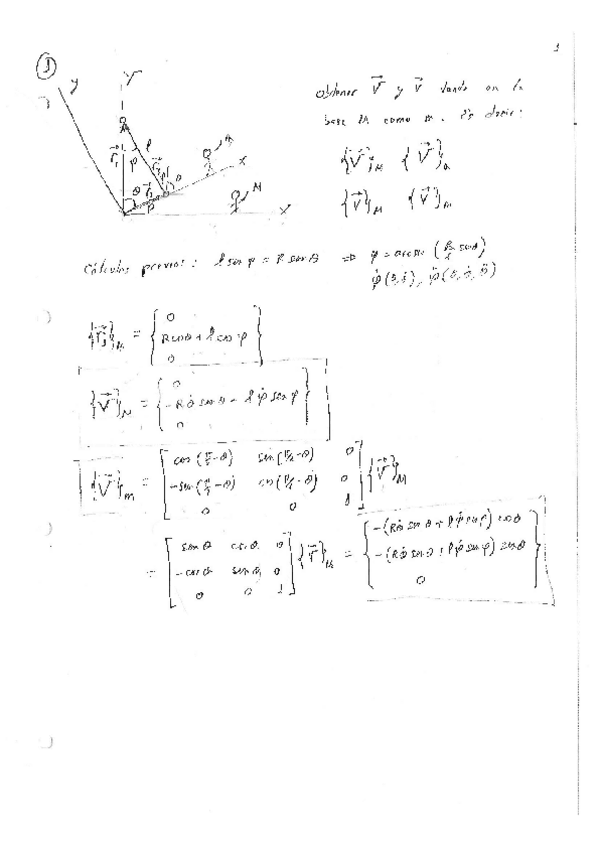 1
①
y
Y
Obtener V⃗ y v⃗ tanto en la
base M como m. Es decir:
{V⃗}_M {V⃗}_m
{v⃗}_M {v⃗}_m
x
M
X
Cálculos previos: l sen φ = R sen θ ⇒ φ = arcsen (R/l sen θ)
φ̇(θ, θ̇), φ̈(θ, θ̇, θ̈)
{r⃗₁}_M = { 0
R cos θ + l cos φ
0 }
{V⃗}_M = { 0
-Rθ̇ sen θ - lφ̇ sen φ
0 }
{V⃗}_m = [ cos(π/2-θ) sen(π/2-θ) 0
-sen(π/2-θ) cos(π/2-θ) 0
0 0 1 ] {V⃗}_M
= [ sen θ cos θ 0
-cos θ sen θ 0
0 0 1 ] {V⃗}_M = { -(Rθ̇ sen θ + lφ̇ sen φ) cos θ
-(Rθ̇ sen θ + lφ̇ sen φ) sen θ
0 }